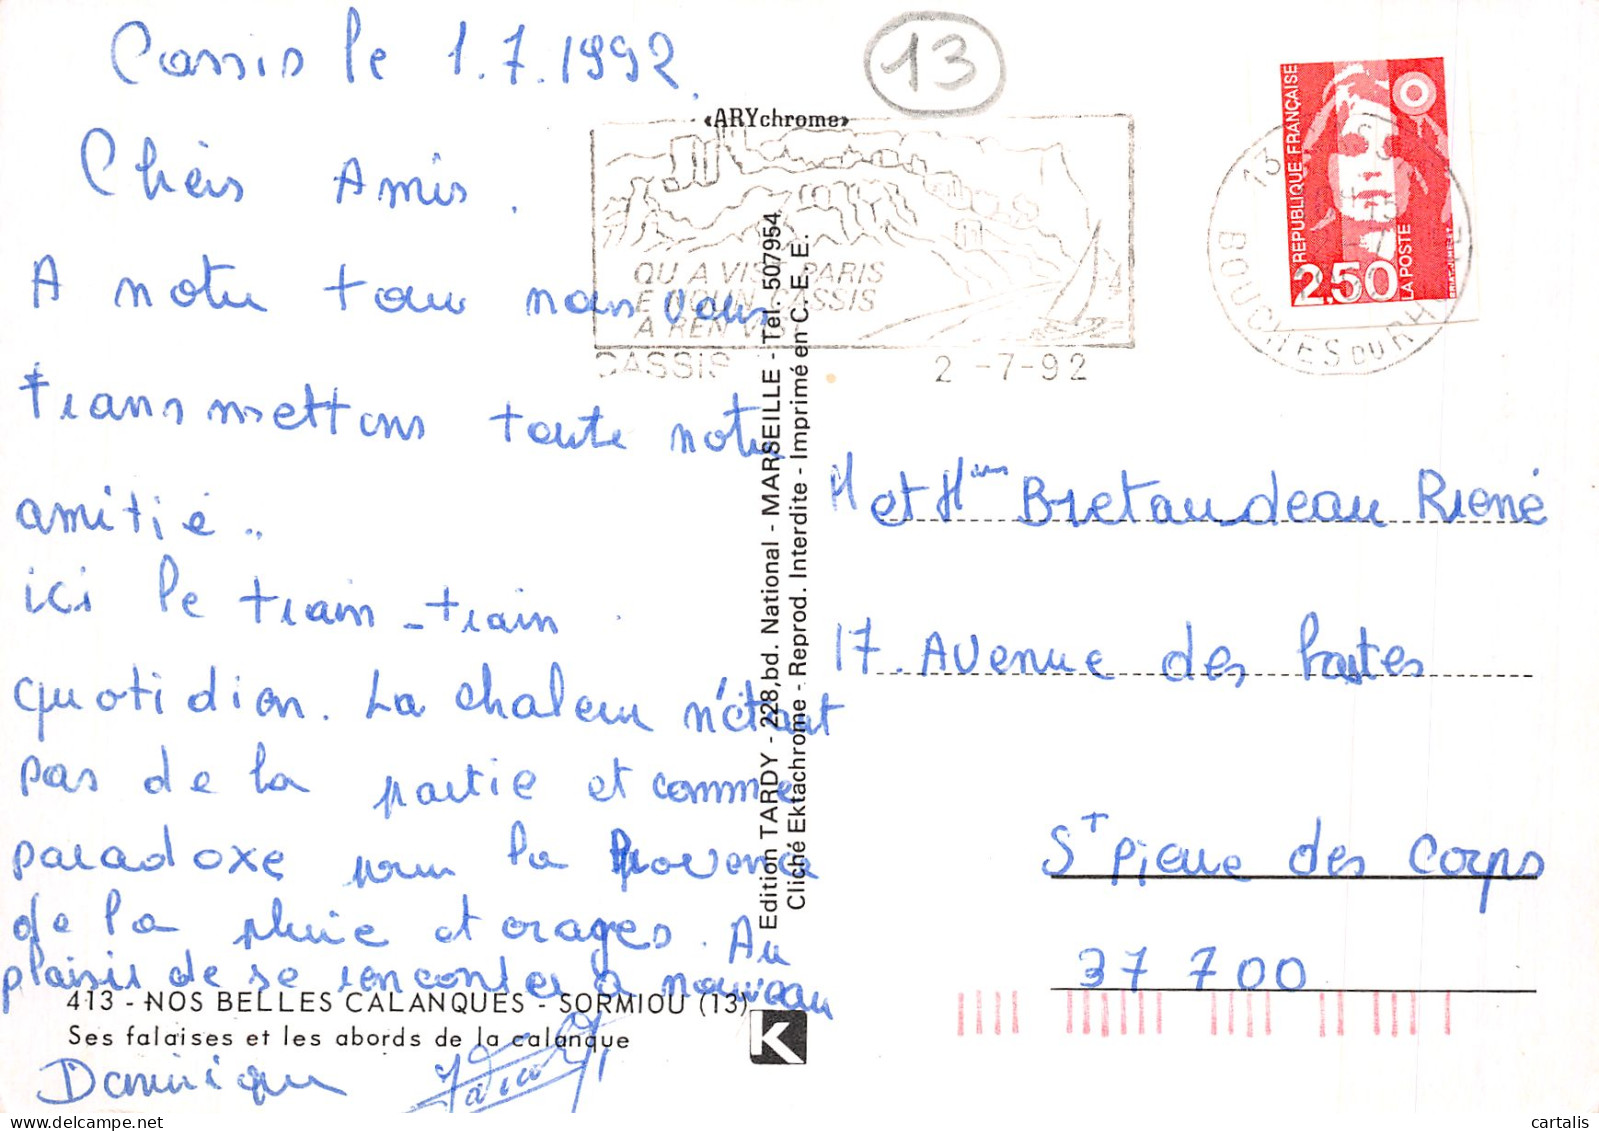 Cassis le 1.7.1992.
Chèrs Amis.
A notre tour nous vous
transmettons toute notre
amitié..
ici le train-train
quotidion. La chaleur n'étant
pas de la partie et comme
paradoxe pour la Provence
de la pluie et orages. Au
plaisir de se rencontrer à nouveau
413 - NOS BELLES CALANQUES - SORMIOU (13)
Ses falaises et les abords de la calanque
Dominique
13
«ARYchrome»
QU A VIST PARIS
E NOUN CASSIS
A REN VIST
CASSIS
2 -7-92
Edition TARDY - 228, bd. National - MARSEILLE - Tél. 507954
Cliché Ektachrome - Reprod. Interdite - Imprimé en C. E. E.
K
RÉPUBLIQUE FRANÇAISE
2,50
LA POSTE
13
BOUCHES DU RH
M et Mme Bretaudeau Riené
17. Avenue des
St Pierre des Corps
37 700
cartalis
delcampe.net